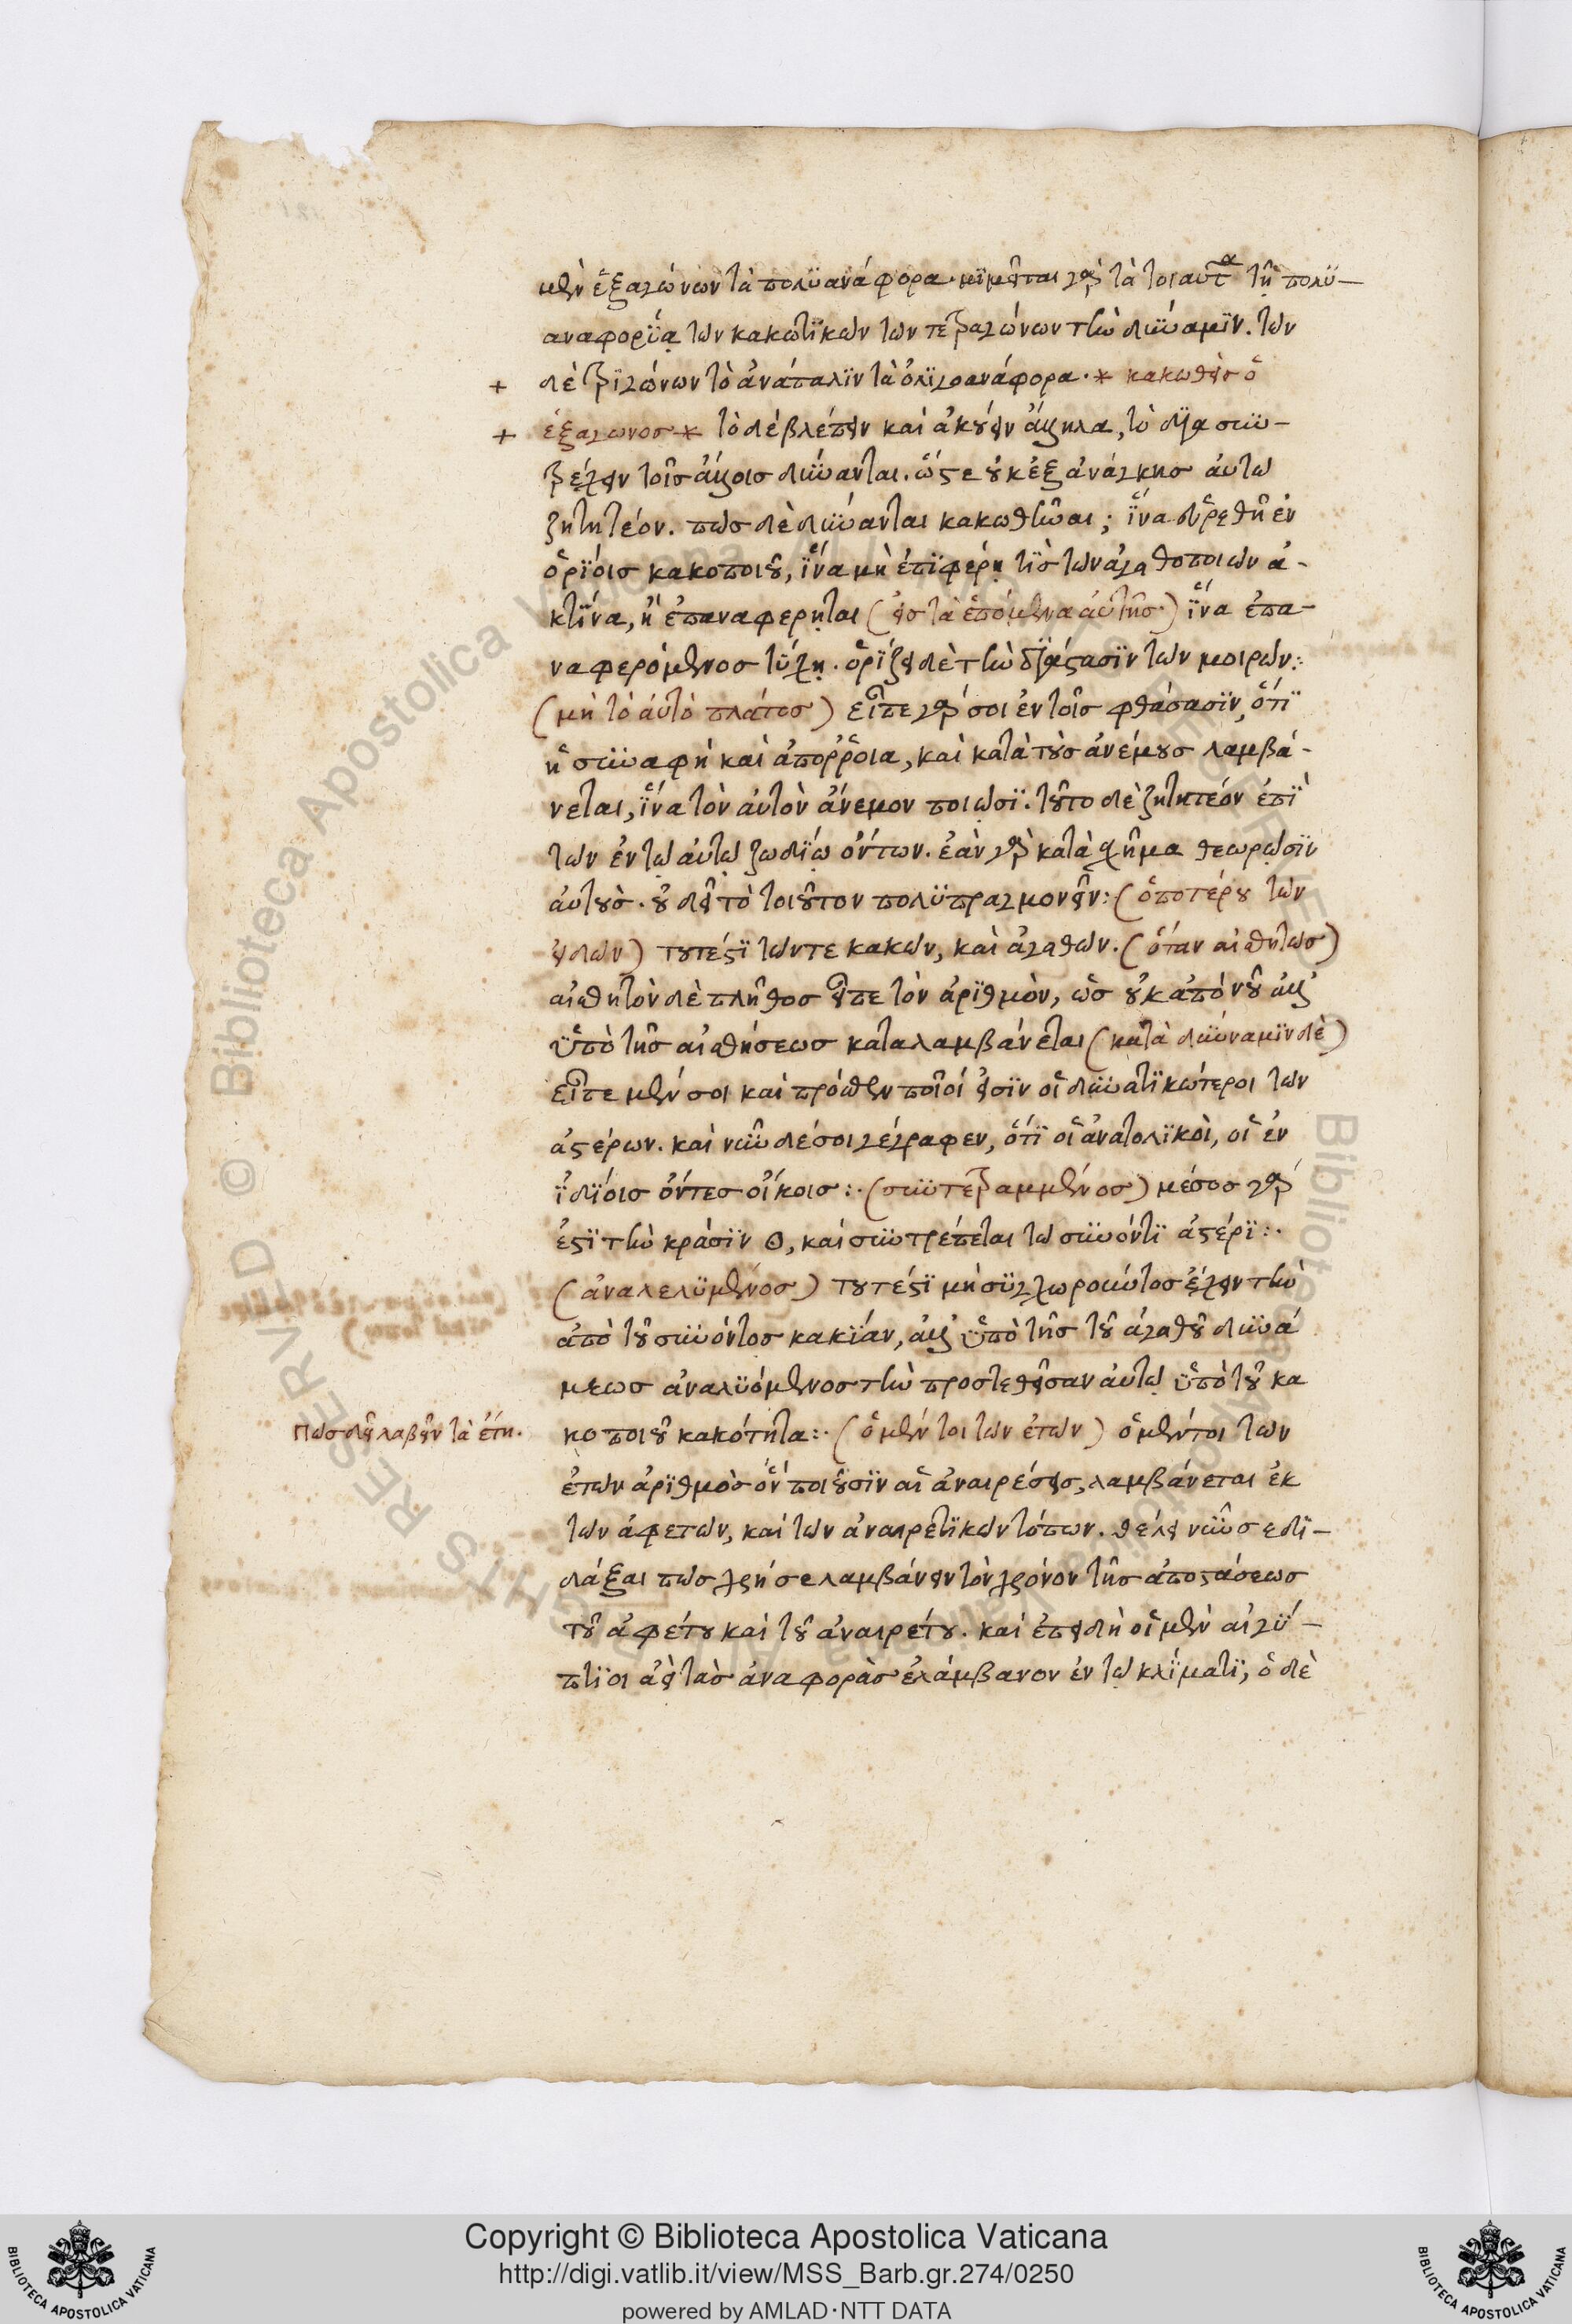 μὲν ἑξαγώνων τὰ πολϋανάφορα. μϊμεῖται γὰρ τὰ τοιαῦτα τῆ πολϋ-
αναφορΐᾳ τῶν κακωτϊκῶν τῶν τετραγώνων τὴν δύναμϊν. τῶν
+ δὲ τρϊγώνων τὸ ἀνάπαλϊν τὰ ὀλϊγοανάφορα. * κακωθεὶς ὁ
+ ἑξάγωνος * τὸ δὲ βλέπειν καὶ ἀκούειν ἄλληλα, τὸ δϊασυν-
τρέχειν τοῖς ἄλλοις δύνανται. ὥστε οὐκ ἐξ ἀνάγκης ἀυτῶ
ζητητέον. πῶς δὲ δύνανται κακωθῆναι; ἵνα εὑρεθῆ ἐν
ὁρΐοις κακοποιοῦ, ἵνα μὴ ἐπϊφέρῃ τὶς τῶν ἀγαθοποιῶν ἀ-
κτῖνα, ἢ ἐπαναφέρηται (εἰς τὰ ἑπόμενα ἀυτῆς) ἵνα ἐπα-
ναφερόμενος τύχῃ. ὁρΐζει δὲ τὴν δϊάστασϊν τῶν μοιρῶν:.
(μὴ τὸ ἀυτὸ πλάτος) εἶπε γάρ σοι ἐν τοῖς φθάσασϊν, ὅτϊ
ἡ συναφὴ καὶ ἀπόρροια, καὶ κατὰ τοὺς ἀνέμους λαμβά-
νεται, ἵνα τὸν ἀυτὸν ἄνεμον ποιῶσϊ. τοῦτο δὲ ζητητέον ἐπῒ
τῶν ἐν τῶ ἀυτῶ ζωδΐω ὄντων. ἐὰν γὰρ κατὰ σχῆμα θεωρῶσϊν
ἀυτοὺς. οὐ δεῖ τὸ τοιοῦτον πολϋπραγμονεῖν: (ὁποτέρου τῶν
εἰδῶν) τουτέστϊ τῶν τε κακῶν, καὶ ἀγαθῶν. (ὅταν αἰσθητῶς)
αἰσθητὸν δὲ πλῆθος εἶπε τὸν ἀρϊθμὸν, ὡς οὐκ ἀπὸ νοῦ ἀλλ'
ὑπὸ τῆς αἰσθήσεως καταλαμβάνεται (κατὰ δύναμϊν δὲ)
εἶπε μέν σοι καὶ πρόσθεν ποῖοί εἰσϊν οἱ δυνατϊκώτεροι τῶν
ἀστέρων. καὶ νῦν δέ σοι γέγραφεν, ὅτϊ οἱ ἀνατολϊκοὶ, οἱ ἐν
ἰδΐοις ὄντες οἴκοις:. (συντετραμμένος) μέσος γάρ
ἐστϊ τὴν κράσϊν Θ, καὶ συντρέπεται τῶ συνόντϊ ἀστέρϊ:.
(ἀναλελϋμένος) τουτέστϊ μὴ συγχωροῦντος ἔχειν τὴν
ἀπὸ τοῦ συνόντος κακΐαν, ἀλλ' ὑπὸ τῆς τοῦ ἀγαθοῦ δυνά
μεως ἀναλϋόμενος τὴν προστεθεῖσαν ἀυτῶ ὑπὸ τοῦ κα
Πῶς δεῖ λαβεῖν τὰ ἔτη.
κοποιοῦ κακότητα:. (ὁ μέν τοι τῶν ἐτῶν) ὁ μέντοι τῶν
ἐτῶν ἀρϊθμὸς ὃν ποιοῦσϊν αἱ ἀναιρέσεις, λαμβάνεται ἐκ
τῶν ἀφετῶν, καὶ τῶν ἀναιρετϊκῶν τόπων. θέλει νῦν σε δϊ-
δάξαι πῶς χρή σε λαμβάνειν τὸν χρόνον τῆς ἀποστάσεως
τοῦ ἀφέτου καὶ τοῦ ἀναιρέτου. καὶ ἐπειδὴ οἱ μὲν αἰγΰ-
πτϊοι ἀεὶ τὰς ἀναφορὰς ἐλάμβανον ἐν τῶ κλΐματϊ, ὁ δὲ
Copyright © Biblioteca Apostolica Vaticana
http://digi.vatlib.it/view/MSS_Barb.gr.274/0250
powered by AMLAD·NTT DATA